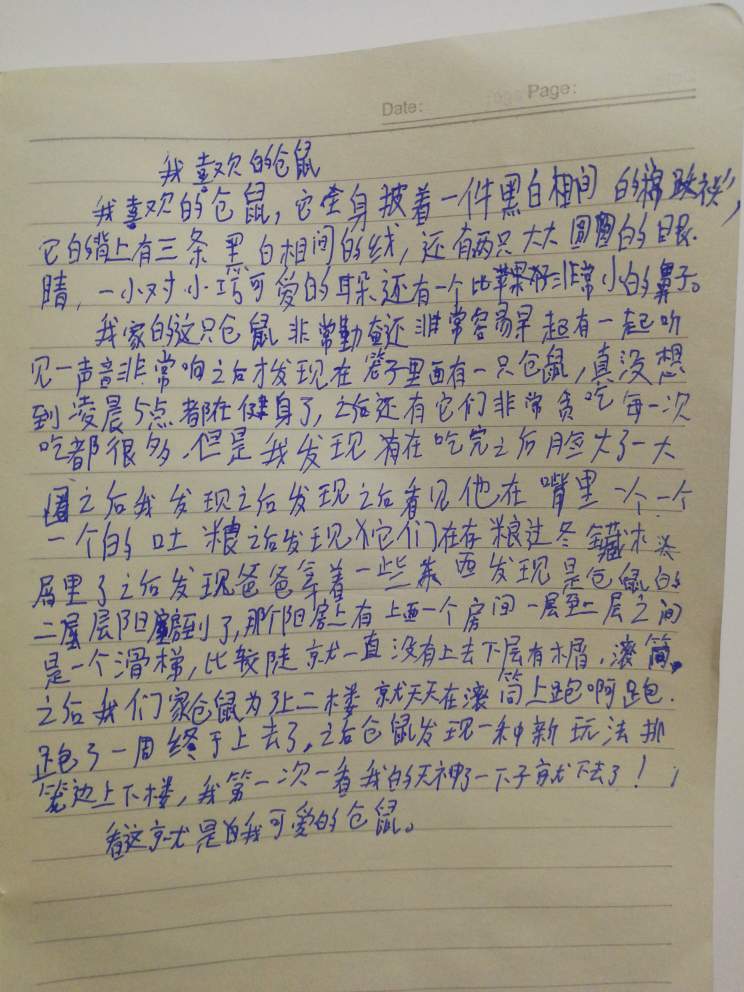 Date: Page:
我喜欢的仓鼠
我喜欢的仓鼠，它全身披着一件黑白相间的棉
它的背上有三条黑白相间的线，还有两只大大圆圆的眼
睛，一小对小巧可爱的耳朵还有一个比苹果籽非常小的鼻子。
我家的这只仓鼠非常勤奋还非常容易早起有一起听
见一声音非常响之后才发现在笼子里面有一只仓鼠，真没想
到凌晨5点都在健身了，之后还有它们非常贪吃每一次
吃都很多.但是我发现有在吃完之后脸大了一大
圈之后我发现之后发现之后看见他在嘴里一个一个
一个的吐粮之后发现它们在存粮过冬藏木
屑里了之后发现爸爸拿着一些东西发现是仓鼠的
二层阳房到了，那个阳房上有上面一个房间一层至二层之间
是一个滑梯，比较陡就一直没有上去下层有木屑，滚筒，
之后我们家仓鼠为了上二楼就天天在滚筒上跑啊跑.
跑了一周终于上去了，之后仓鼠发现一种新玩法排
笼边上下楼，我第一次一看我的天神了一下子就下去了！
看这就是我可爱的仓鼠。